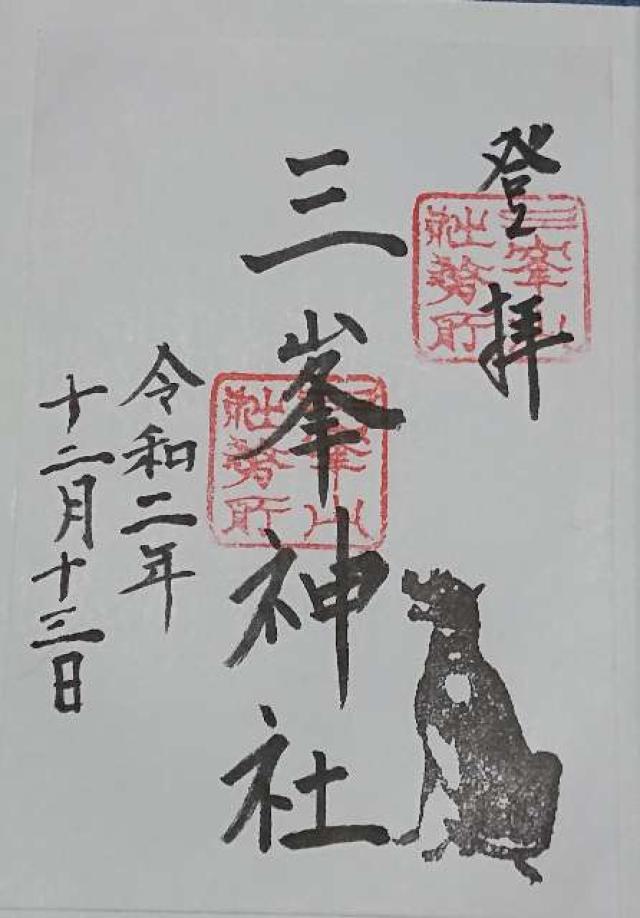 登拝
三峯山
社務所
三峯神社
三峯山
社務所
令和二年
十二月十三日